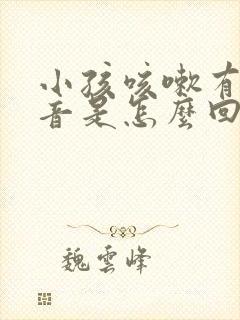 小孩咳嗽有
音是怎麼回
魏雲峰